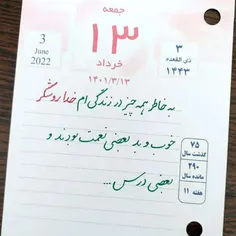 جمعه
۱۳
خرداد
۱۴۰۱/۳/۱۳
3
June
2022
۳
ذی القعده
۱۴۴۳
به خاطر همه چیز در زندگی ام خدا رو شکر
خوب و بد بعضی نعمت بودند و
بعضی درس ...
۷۵
گذشت سال
۲۹۰
مانده سال
هفته ۱۱